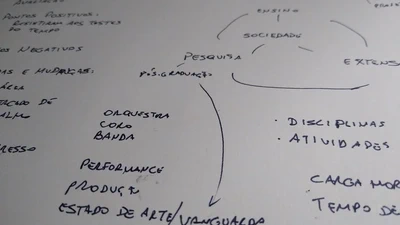 AVALIAÇÃO
PONTOS POSITIVOS:
RESISTIRAM AOS TESTES
DO TEMPO
OS NEGATIVOS
AS E MUDANÇAS:
ENSINO
SOCIEDADE
PESQUISA
PÓS-GRADUAÇÃO
EXTENS
ORQUESTRA
CORO
BANDA
PERFORMANCE
PRODUÇÃ
ESTADO DE ARTE/VANGUARDA
· DISCIPLINAS
· ATIVIDADES
CARGA HOR
TEMPO DE